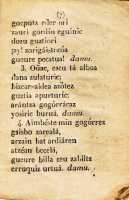 (7)
gorputa eder ori
zauri gordiñ eguinic
dozu guztiori
py! zarigaiztaüa
gueure pecatua! damu.
3. Oñac, escu tá albua
dana zulaturic:
bizcar-aldea azótez
guztia apurturic:
arántza gogórrácaz
yosiric buruä. damu.
4. Aimbéste min gogórrez
gaisbo zareala,
arzain bat ardiären
atzéan becela,
gueure billa esu zabiltz
erruquic urtuä. damu.